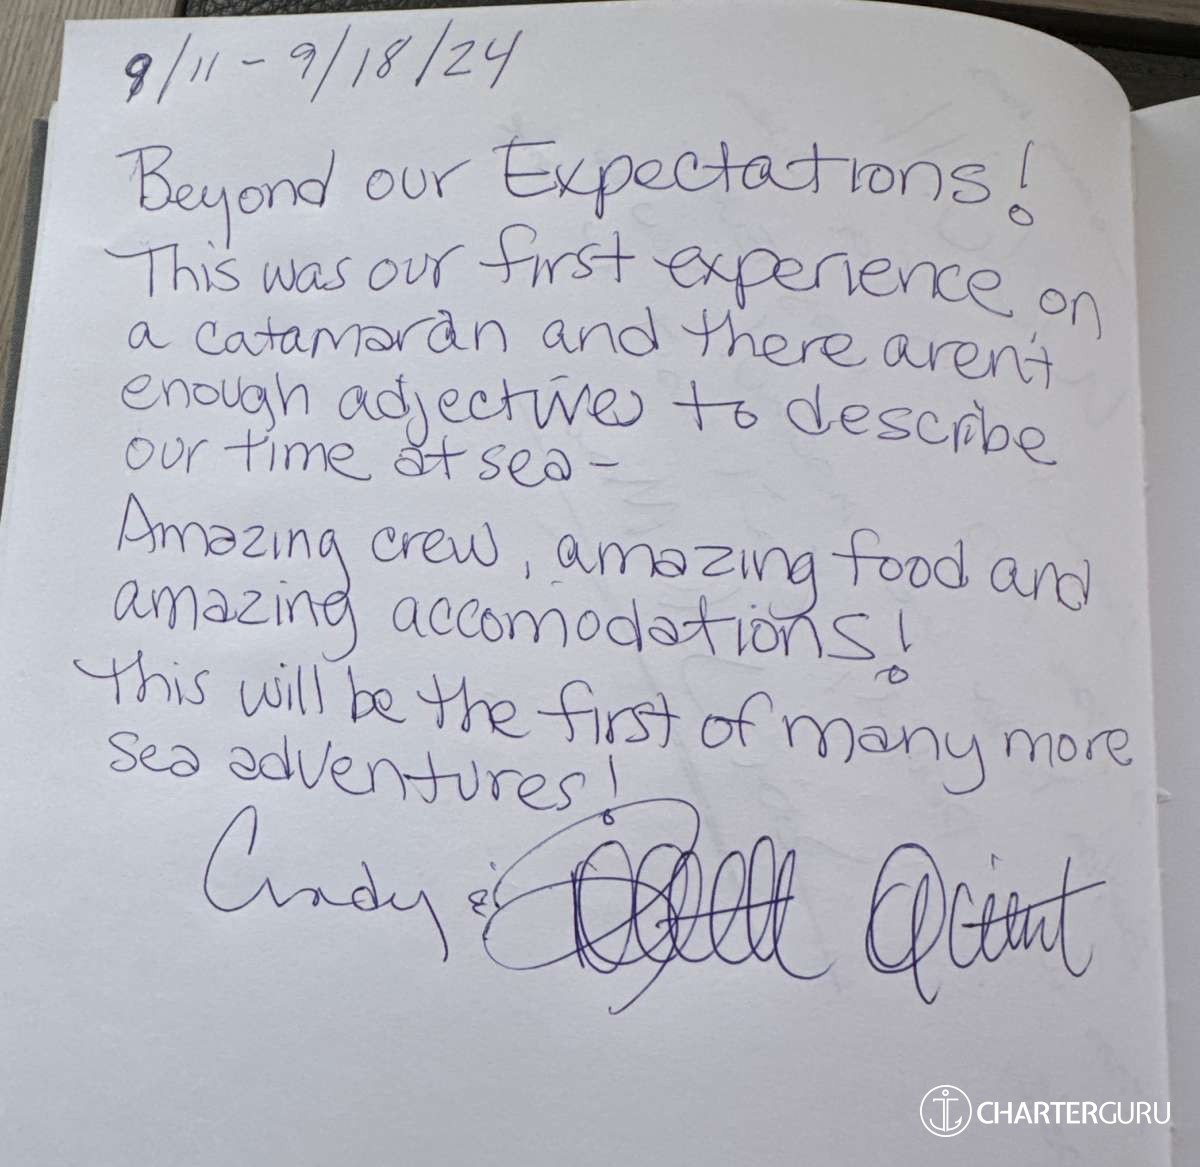 9/11 - 9/18/24
Beyond our Expectations!
This was our first experience on
a catamaran and there aren't
enough adjectives to describe
our time at sea -
Amazing crew, amazing food and
amazing accomodations!
This will be the first of many more
sea adventures!
Cindy &
CHARTERGURU